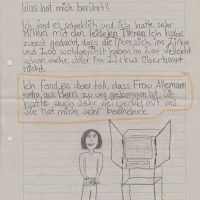 Was hat mich berührt?
Ich fand es schecklich und ich hatte sehr
Mitleid mit den leidenen Tieren. Ich habe
zuerst gedacht, dass die Tiere sich im Zirkus
und Zoo wohlgefühlt haben im Zoo vieleicht
schon mehr, aber im Zirkus Überhaupt
nicht.
Ich fand es aber toll, dass Frau Allemann
extra aus Bern zu uns gekommen ist. Sie
hatte auch sehr viel Geduld mit uns.
Sie hat mich sehr beeindruck